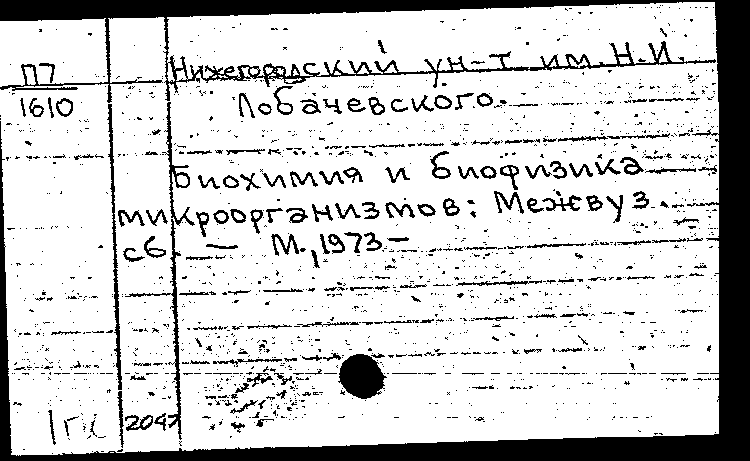 П7
1610
Нижегородский ун-т им. Н.И.
Лобачевского.
Биохимия и биофизика
микроорганизмов: Межвуз.
сб. — М., 1973 —
1гк
2047